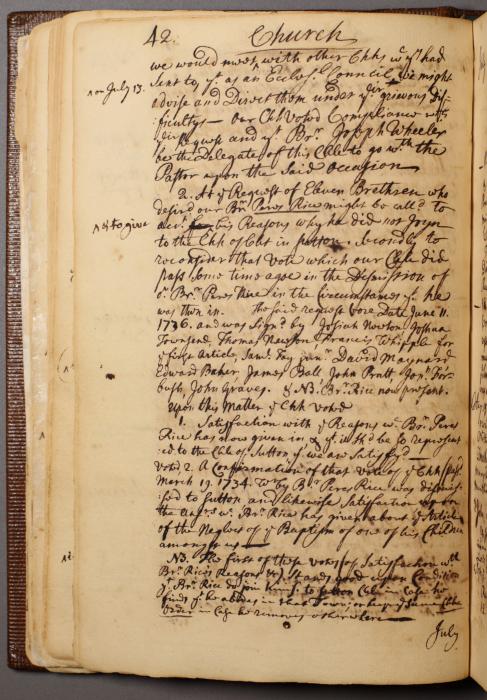 42.
Church
we would meet with other Chhs wc yt had
Sent to, yt as an Eccles: Council, we might
on July 13.
advise and Direct them under yir grievous Dif-
ficultys — Our Chh Vowd Compliance wth
Request and yt Br. Joseph Wheeler
be the Delegate of this Chh to go wth the
Pastor upon the Said Occasion
2. At ye Request of Eleven Brethren who
desird our Br. Peres Rice might be call'd to
& to give
his Reasons why he did not Joyn
to the Chh of Cht in Sutton. Secondly to
reconsider that Vote which our Chh did
pass Some time agoe in the Dismission of
or Br. Peres Rice in the Circumstances yt he
was then in. The said request bore Date June 11.
1736. and was Sign'd by Josiah Newton Joshua
Townsend, Thomas Newton Francis Whipple for
ye first Article, Saml. Fay junr. David Maynard
Edward Baker James Ball John Pratt Jos. For-
bush, John Graves. & NB. Br. Rice now present.
Upon this Matter ye Chh Voted
1. Satisfaction with ye Reasons wc Br. Peres
Rice has now given in & yt it sh'd be so represent
-ed to the Chh of Sutton yt we are Satisfyd
Voted 2. A Confirmation of that Vote of ye Chh pass'd
March 19. 1734. by Br Peres Rice was dismis-
sed to Sutton and likewise Satisfaction upon
the wc Br. Rice has given about ye Article
of the Neglect of ye Baptism of one of his Children
amongst us
NB. The first of these votes of Satisfaction wth
Br. Rice's Reasons Stands good upon Condition
yt Br. Rice do join himself to Sutton Chh in Case he
finds yt he abides in that Town,
in Case he removes otherwhere
July